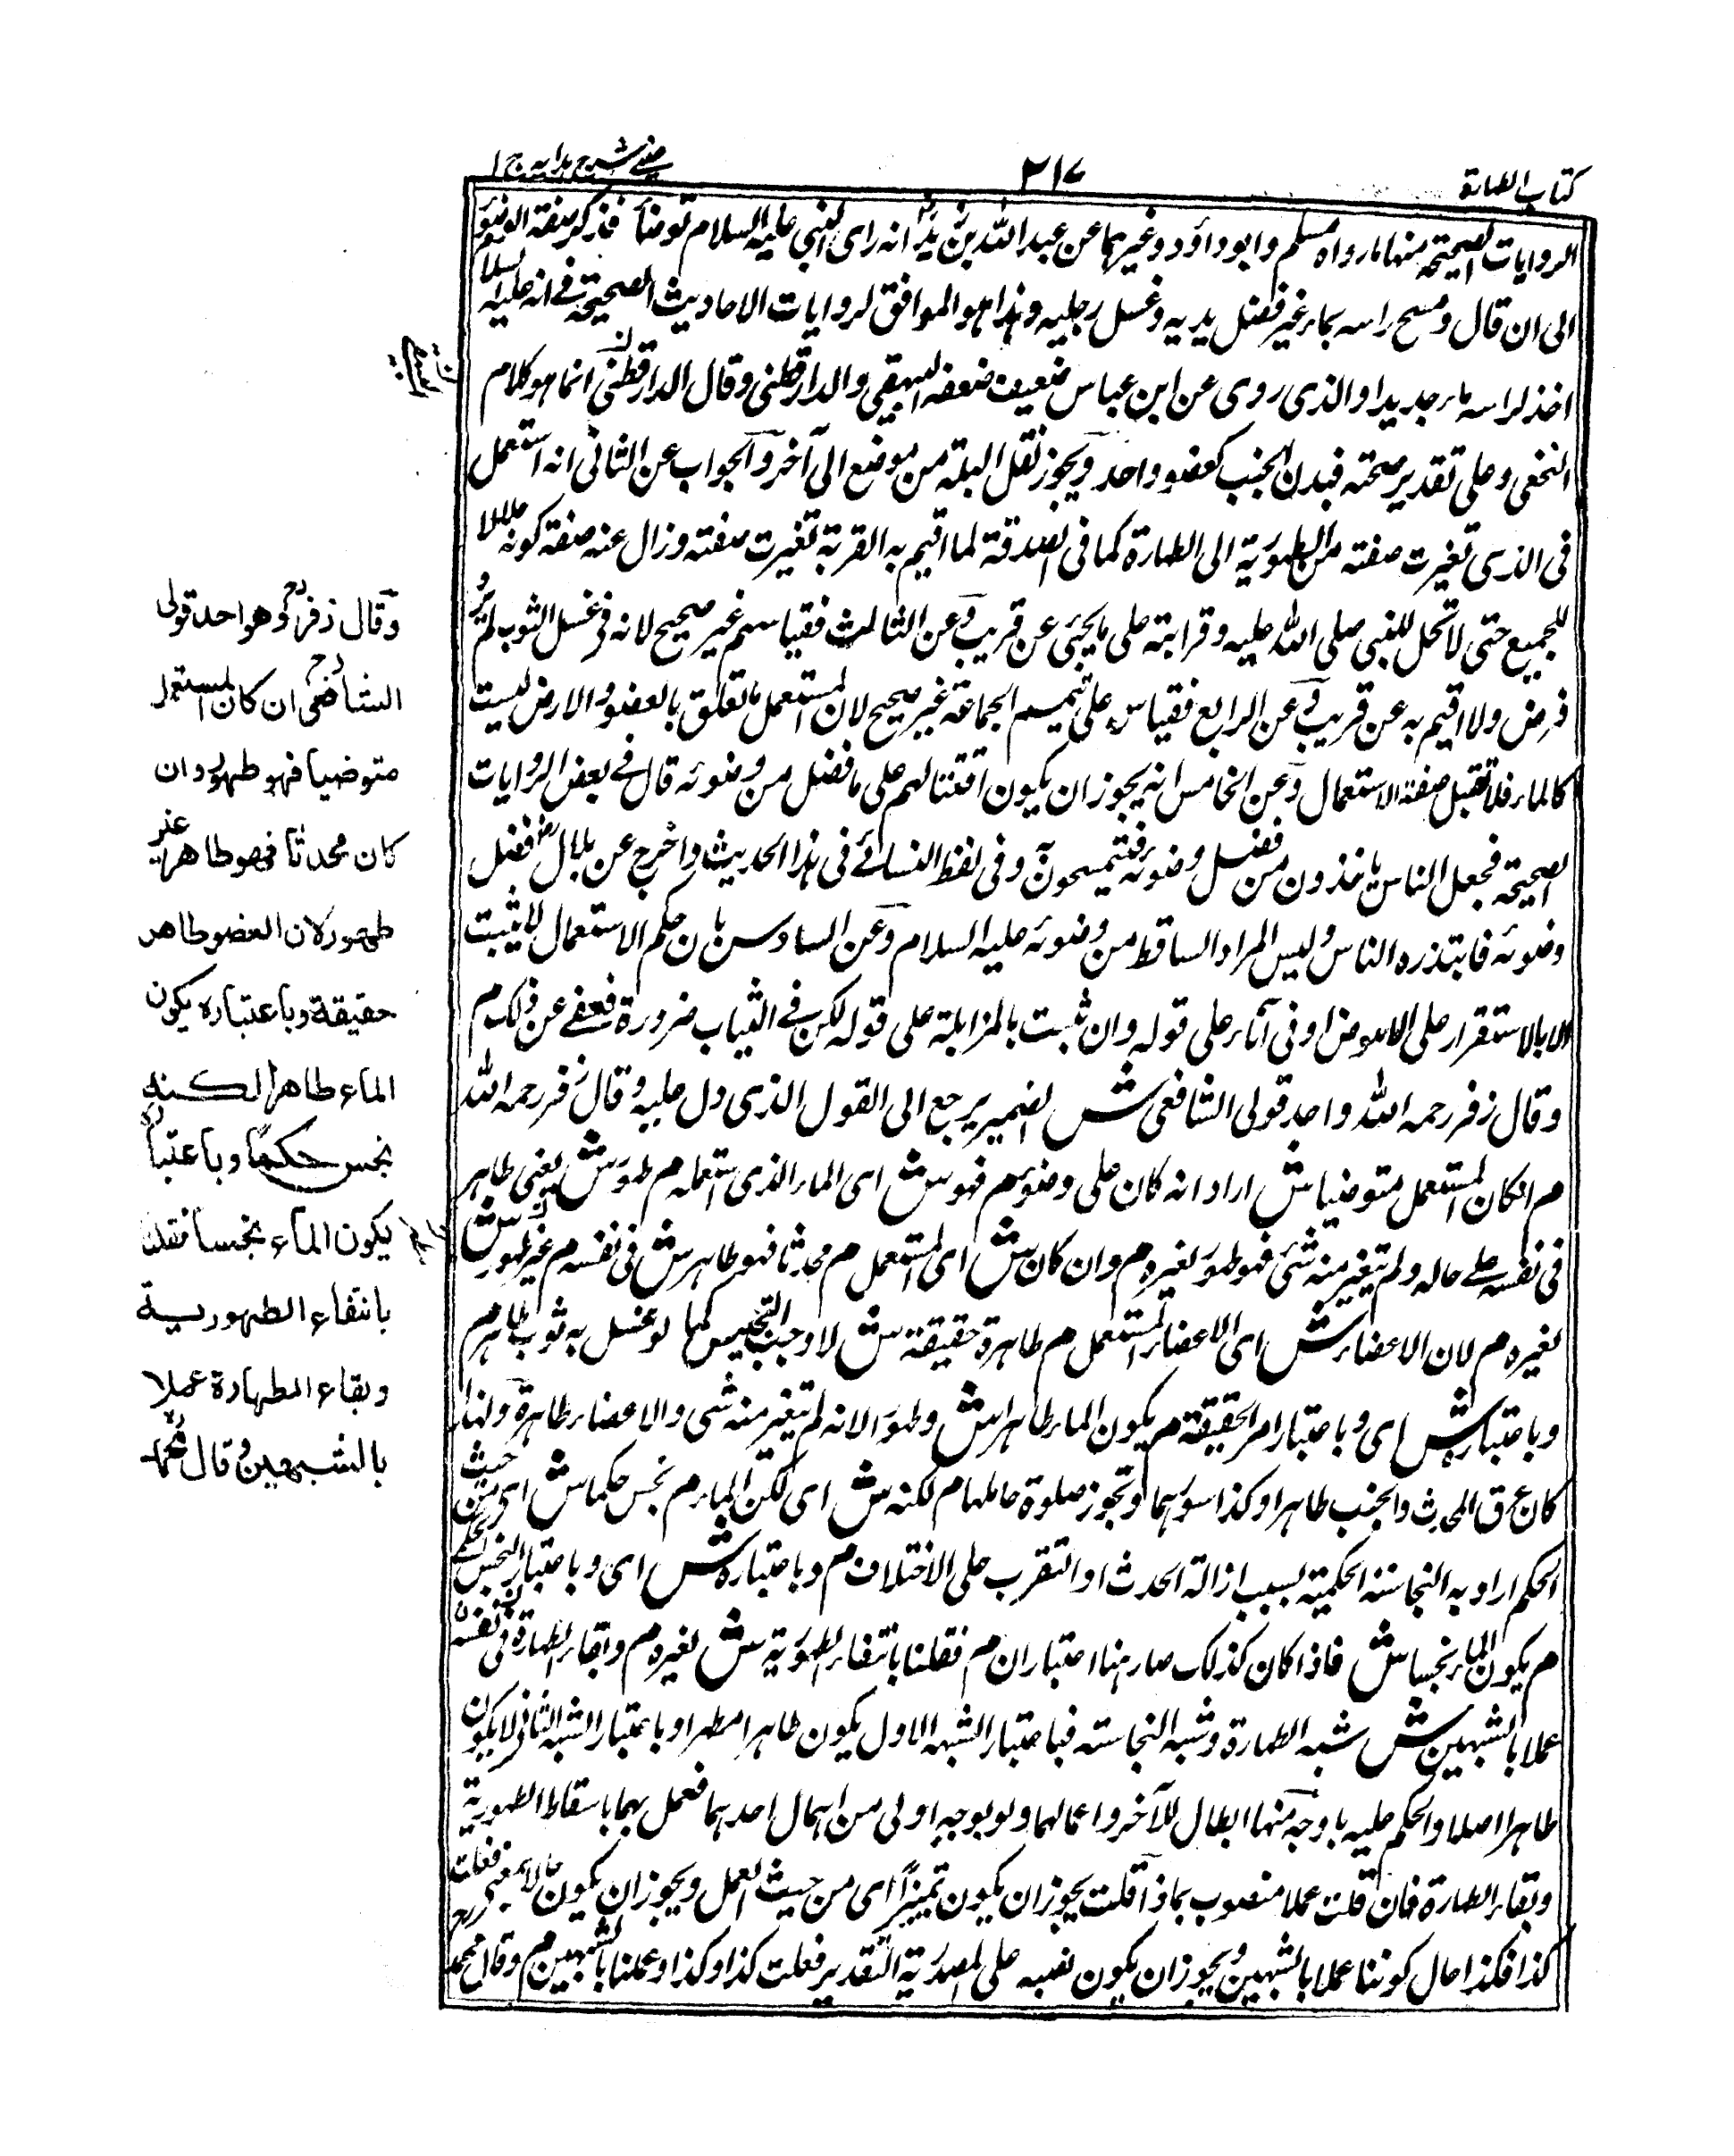 كتاب الطهارة
٢١٧
عيني شرح هداية ج ١
الروايات الصحيحة منها ما رواه مسلم وابو داؤد وغيرهما عن عبد الله بن زيد انه راى النبي عليه السلام توضأ فذكر صفة الوضوء
الى ان قال ومسح راسه بماء غير فضل يديه وغسل رجليه وهذا هو الموافق لروايات الاحاديث الصحيحة في انه عليه السلام
اخذ لراسه ماء جديدا والذى روى عن ابن عباس ضعيف ضعفه البيهقي والدارقطني وقال الدارقطني انما هو كلام
النخعى وعلى تقدير صحته فبدن الجنب كعضو واحد ويجوز نقل البلة من موضع الى آخر والجواب عن الثانى انه استعمل
فى الذى تغيرت صفته من الطهورية الى الطهارة كما فى الصدقة لما اقيم به القربة تغيرت صفته وزال عنه صفة كونه حلالا
للجميع حتى لا تحل للنبى صلى الله عليه وقرابته على ما يجئى عن قريب وعن الثالث فقياسهم غير صحيح لانه فى غسل الثوب لم يزد
فرض ولا اقيم به عن قريب وعن الرابع فقياسه على تيمم الجماعة غير صحيح لان المستعمل ما تعلق بالعضو والارض ليست
كالماء فلا تقبل صفة الاستعمال وعن الخامس انه يجوز ان يكون اقتتالهم على ما فضل من وضوئه قال في بعض الروايات
الصحيحة فجعل الناس ياخذون من فضل وضوئه فيتمسحون وفى لفظ النسائے فى هذا الحديث واخرج عن بلال فضل
وضوئه فابتذره الناس وليس المراد الساقط من وضوئه عليه السلام وعن السادس بان حكم الاستعمال لا يثبت
الا بالاستقرار على الارض او فى اناء على قوله وان ثبت بالمزايلة على قوله لكن في الثياب ضرورة فعفے عن ذلك م
وقال زفر رحمه الله واحد قولى الشافعى ش الضمير يرجع الى القول الذى دل عليه وقال زفر رحمه الله
م انكان المستعمل متوضيا ش اراد انه كان على وضوء م فهو ش اى الماء الذى استعمله م طهور ش يعنى طاهر
فى نفسه على حاله ولم يتغير منه شئى فهو طهور لغيره م وان كان ش اى المستعمل م محدثا فهو طاهر ش فى نفسه م غير طهور ش
لغيره م لان الاعضاء ش اى الاعضاء المستعمل م طاهرة حقيقة ش لا وجب التنجيس كما لو غسل به ثوب طاهر م
وباعتباره ش اى وباعتبار امر الحقيقة م يكون الماء طاهرا ش وطهورا لانه لم يتغير منه شى والاعضاء طاهرة ولهذا
كان عرق المحدث والجنب طاهرا وكذا سورهما وتجوز صلوة حاملها م لكنه ش اى لكن الماء م نجس حكما ش اى من حيث
الحكم اراد به النجاسة الحكمية بسبب ازالة الحدث او التقرب على الاختلاف م وباعتباره ش اى وباعتبار النجس الحكمى
م يكون الماء نجسا ش فاذا كان كذلك صار هنا اعتباران م فقلنا بانتفاء الطهورية ش لغيره م وبقاء الطهارة فى نفسه
عملا بالشبهين ش شبه الطهارة وشبه النجاسة فباعتبار الشبه الاول يكون طاهرا مطهرا وباعتبار الشبه الثانى لا يكون
طاهرا اصلا والحكم عليه باوجه منها ابطال للآخر واعمالهما ولو بوجه اولى من اهمال احدهما فعمل بهما باسقاط الطهورية
وبقاء الطهارة فان قلت عملا منصوب بماذا قلت يجوز ان يكون تميزا اى من حيث العمل ويجوز ان يكون حالا بمعنى فعلت
كذا فكذا حال كوننا عملا بالشبهين ويجوز ان يكون نصبه على المصدرية التقدير فعلت كذا وكذا وعملنا بالشبهين م وقال محمد
وقال زفر وهو احد قولى
الشافعى ان كان المستعمل
متوضيا فهو طهور وان
كان محدثا فهو طاهر غير
طهور لان العضو طاهر
حقيقة وباعتباره يكون
الماء طاهرا لكنه
نجس حكما وباعتباره
يكون الماء نجسا فقلنا
بانتفاء الطهورية
وبقاء الطهارة عملا
بالشبهين وقال محمد